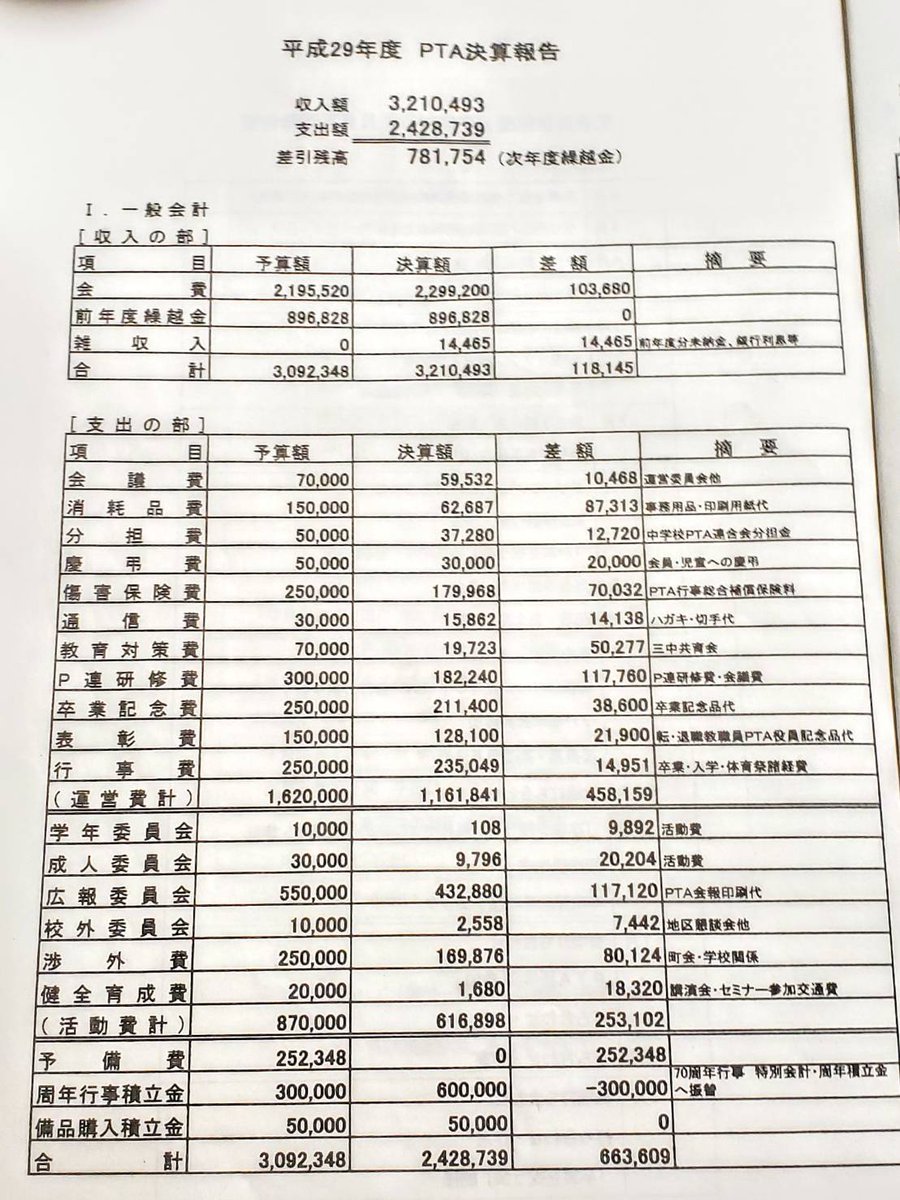 平成29年度 PTA決算報告
収入額 3,210,493
支出額 2,428,739
差引残高 781,754 (次年度繰越金)
Ⅰ.一般会計
[収入の部]
項 目 予算額 決算額 差額 摘要
会費 2,195,520 2,299,200 103,680
前年度繰越金 896,828 896,828 0
雑収入 0 14,465 14,465 前年度分未納金、銀行利息等
合計 3,092,348 3,210,493 118,145
[支出の部]
項 目 予算額 決算額 差額 摘要
会議費 70,000 59,532 10,468 運営委員会他
消耗品費 150,000 62,687 87,313 事務用品・印刷用紙代
分担費 50,000 37,280 12,720 中学校PTA連合会分担金
慶弔費 50,000 30,000 20,000 会員・児童への慶弔
傷害保険費 250,000 179,968 70,032 PTA行事総合補償保険料
通信費 30,000 15,862 14,138 ハガキ・切手代
教育対策費 70,000 19,723 50,277 三中共育会
P連研修費 300,000 182,240 117,760 P連研修費・会議費
卒業記念費 250,000 211,400 38,600 卒業記念品代
表彰費 150,000 128,100 21,900 転・退職教職員PTA役員記念品代
行事費 250,000 235,049 14,951 卒業・入学・体育祭諸経費
(運営費計) 1,620,000 1,161,841 458,159
学年委員会 10,000 108 9,892 活動費
成人委員会 30,000 9,796 20,204 活動費
広報委員会 550,000 432,880 117,120 PTA会報印刷代
校外委員会 10,000 2,558 7,442 地区懇談会他
渉外費 250,000 169,876 80,124 町会・学校関係
健全育成費 20,000 1,680 18,320 講演会・セミナー参加交通費
(活動費計) 870,000 616,898 253,102
予備費 252,348 0 252,348
周年行事積立金 300,000 600,000 -300,000 70周年行事 特別会計・周年積立金
へ振替
備品購入積立金 50,000 50,000 0
合計 3,092,348 2,428,739 663,609